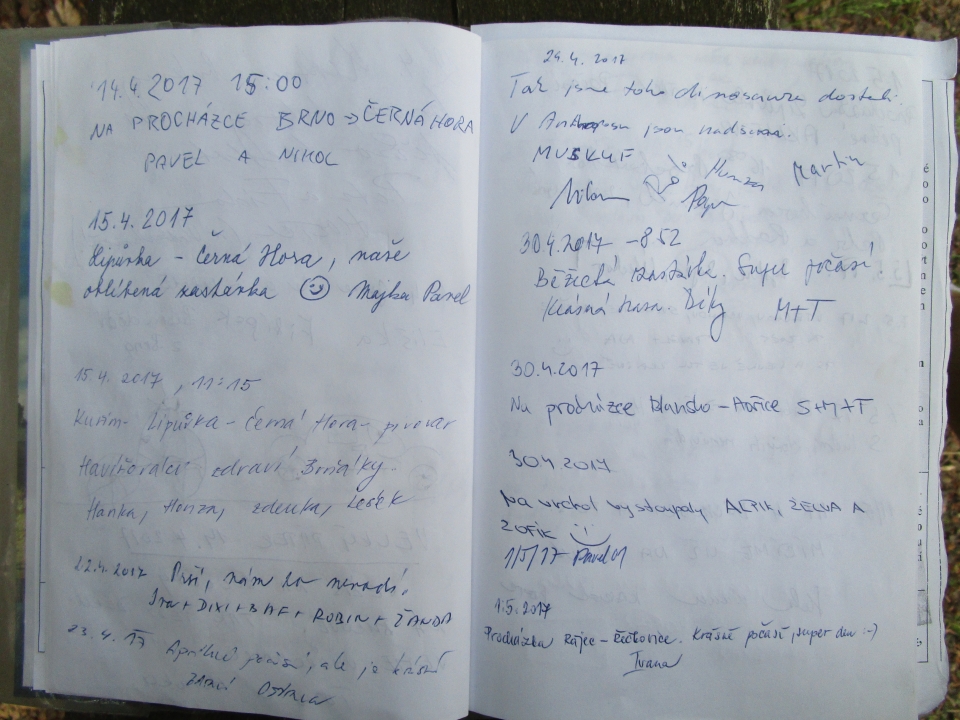 14.4.2017 15:00
NA PROCHÁZCE BRNO → ČERNÁ HORA
PAVEL A NIKOL
15.4.2017
Lipůvka - Černá Hora, naše
oblíbená zastávka ☺ Majka Pavel
15.4.2017, 11:15
Kuřim - Lipůvka - Černá Hora - pivovar
Havířováci zdraví Brňáky
Hanka, Honza, Zdenka, Lešek
22.4.2017 Prší, nám to nevadí.
Iva + DIXI + BAF + ROBIN + ŽANDA
23.4.17 Aprílové počasí, ale je krásně
ZDRAVÍ Ostrava
29.4.2017
Tak jsme toho dinosaura dostali.
V Anthroposu jsou nadšeni.
Milan Honza Martin
30.4.2017 - 8 52
Běžecká zastávka. Super počasí!
Krásná trasa. Díky M+T
30.4.2017
Na procházce Blansko - Hořice S+M+T
30.4.2017
Na vrchol vystoupaly ALPIK, ŽELVA A
ŽOFIK :-)
1/5/17 Pavel M
1.5.2017
Procházka Rájec - . Krásné počasí, super den :-)
Ivana